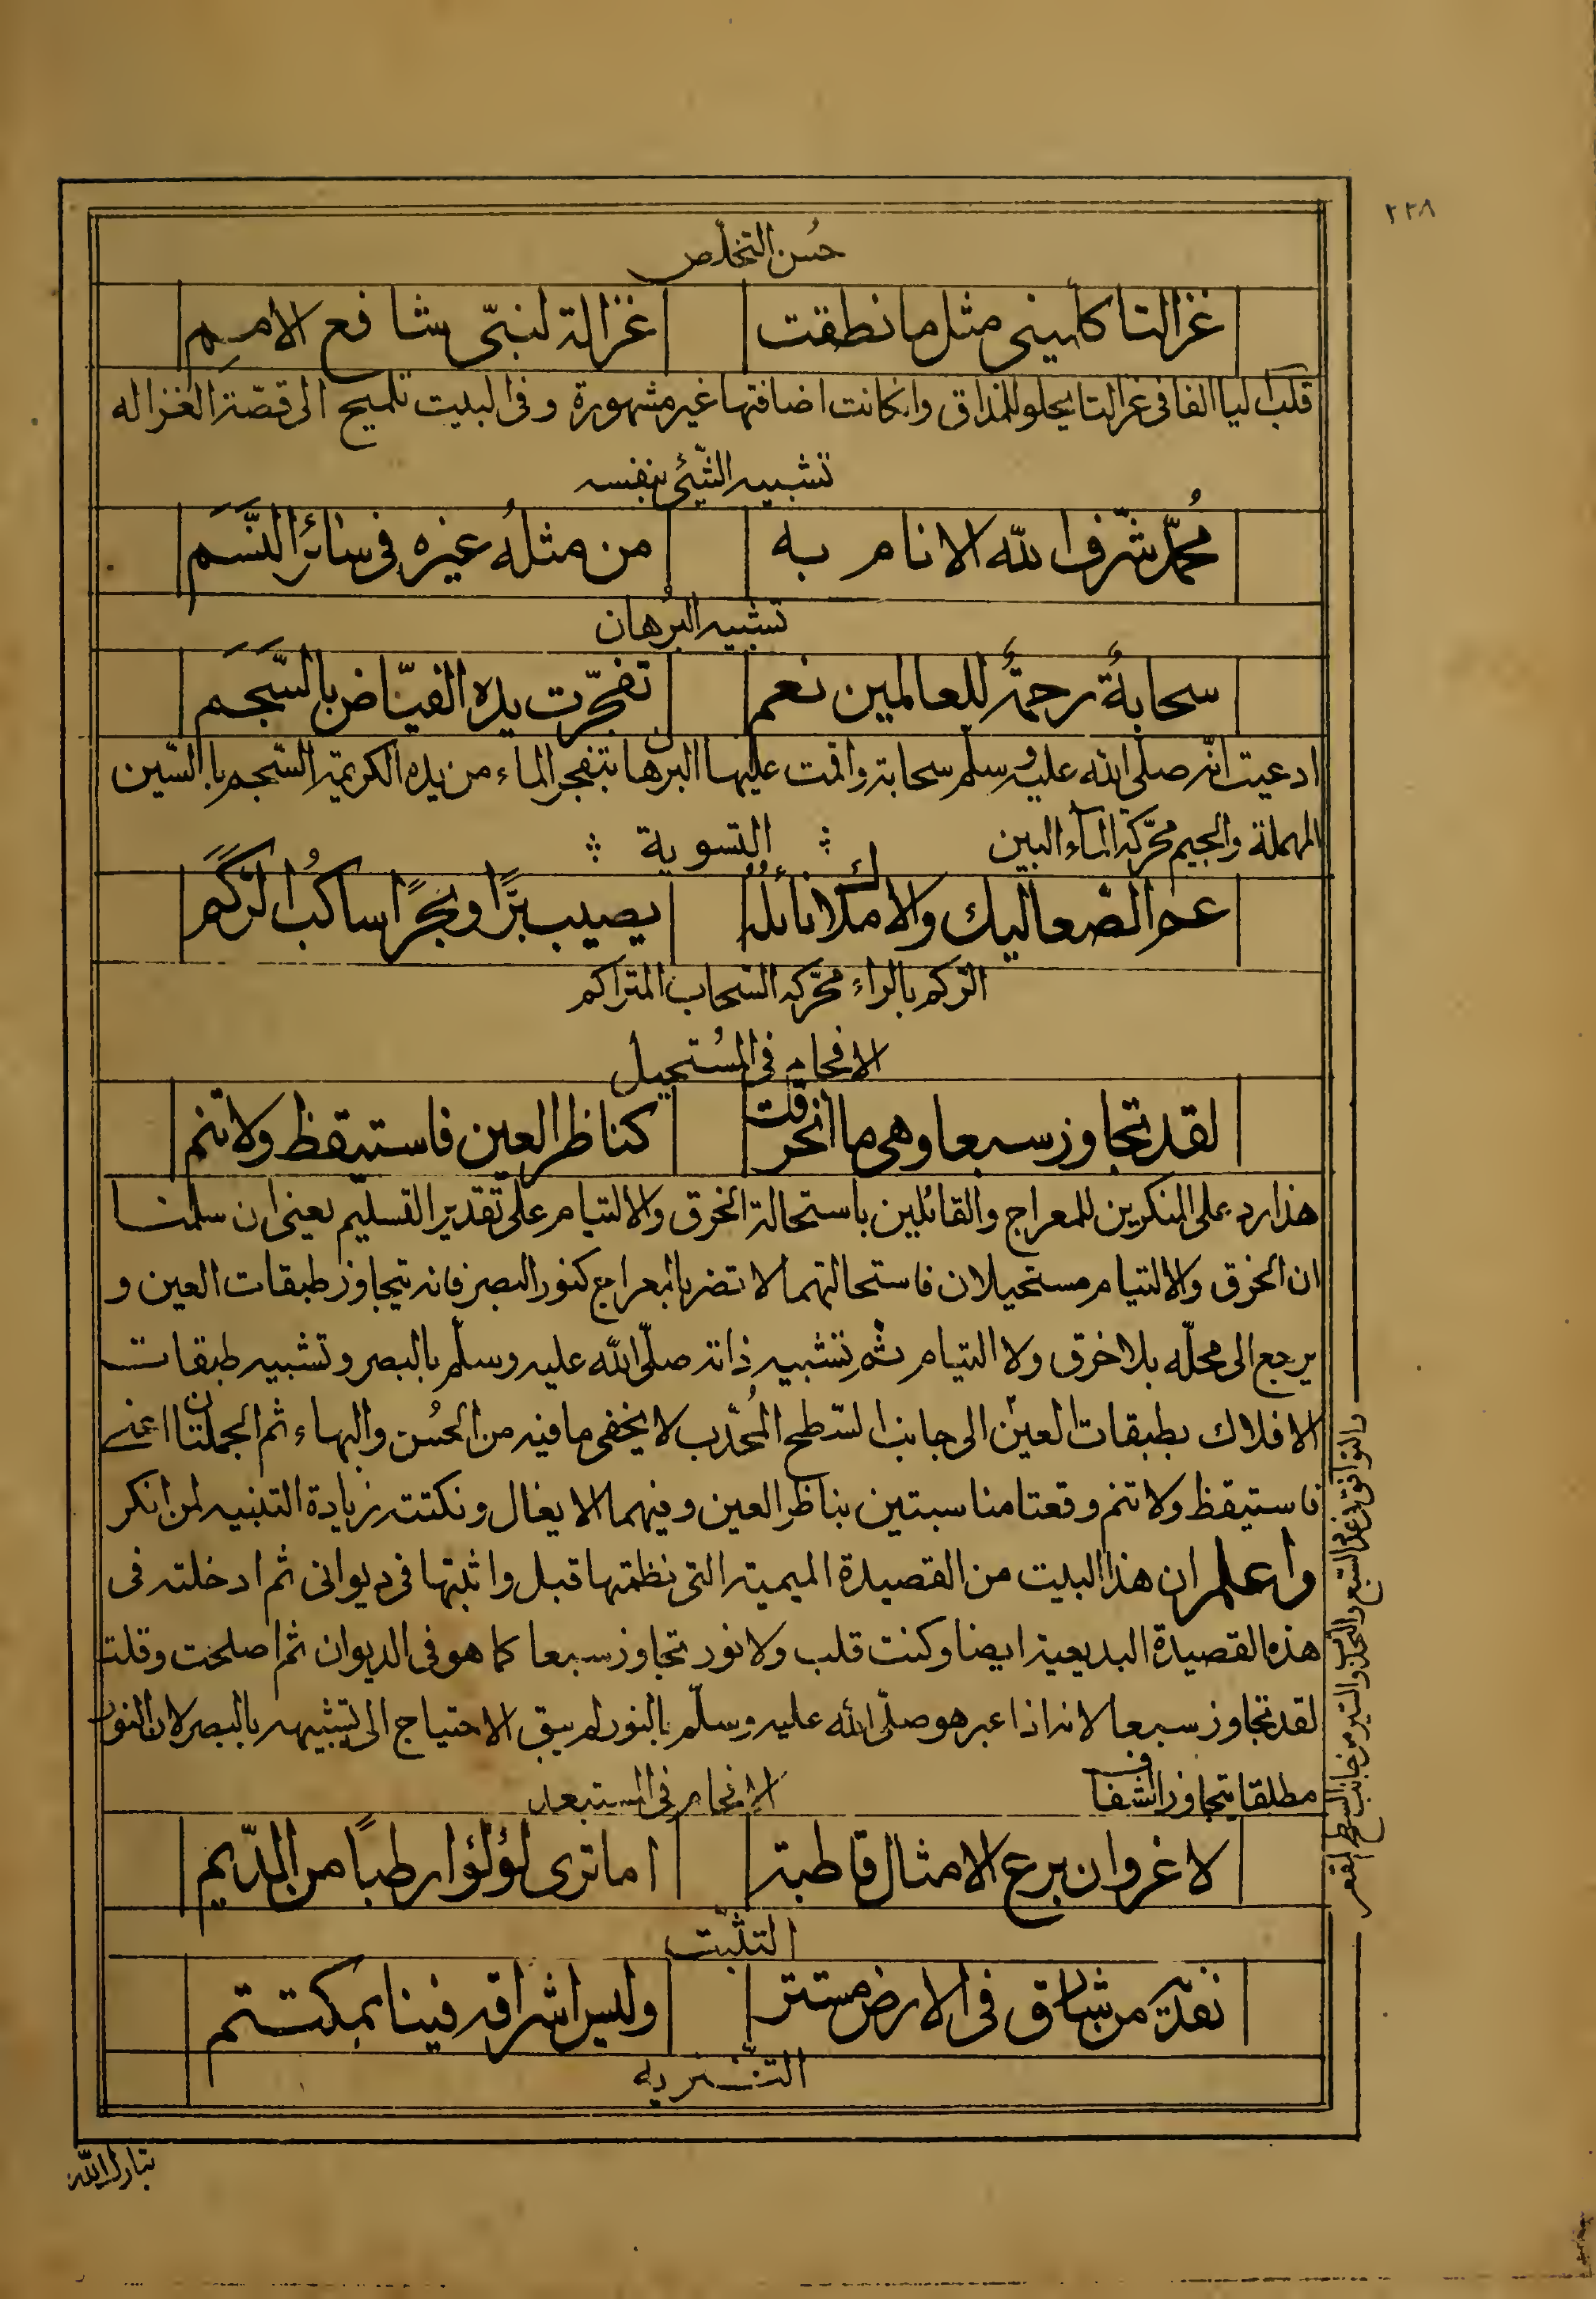 ٢٢٨
حُسن التخلّص
غزالتا كلّميني مثل ما نطقت غزالة لنبيّ شافع الامم
قلب اليا الفا في غزالتا يحلو للمذاق وان كانت اضافتها غير مشهورة وفي البيت تلميح الى قصّة الغزاله
تشبيه الشّيئ بنفسه
مُحمّد شرّف الله الانام به من مثلهُ غيره في سائر النَّسَم
تشبيه البرُهان
سحابةُ رحمةٌ للعالمين نعم تفجّرت يده الفيّاض بالسَّجَم
ادعيت انّه صلّى الله عليه وسلّم سحابة واقمت عليها البرهان بتفجر الماء من يده الكريمة السّجم بالسّين
المهملة والجيم محرّكة المآء البين
التسوية
عم الصّعاليك والاملاك نائلهُ يصيب برًّا وبحرًا ساكبُ الرّكَم
الرّكم بالراء محرّكه السّحاب المتراكم
الافحام في المُستحيل
لقد تجاوز سبعا وهى ما انخرقت كناظر العين فاستيقظ ولا تنم
هذا رد على المنكرين للمعراج والقائلين باستحالة الخرق والالتيام على تقدير التسليم يعني ان سلمنا
ان الخرق والالتيام مستحيلان فاستحالتهما لا تضر بالمعراج كنور البصر فانه يتجاوز طبقات العين و
يرجع الى محلّه بلا خرق ولا التيام ثم تشبيه ذاته صلّى الله عليه وسلّم بالبصر وتشبيه طبقات
الافلاك بطبقات العين الى جانب السّطح المُحدّب لا يخفى ما فيه من الحُسن والبهاء ثم الجملتان اعني
فاستيقظ ولا تنم وقعتا مناسبتين بناظر العين وفيهما الايغال ونكتته زيادة التنبيه لمن انكر
واعلم ان هذا البيت من القصيدة الميمية التي نظمتها قبل واثبتها في ديواني ثم ادخلته في
هذه القصيدة البديعية ايضا وكنت قلب ولا نور تجاوز سبعا كما هو في الديوان ثم اصلحت وقلت
لقد تجاوز سبعا لانه اذا عبر هو صلّى الله عليه وسلّم بالنور لم يبق الاحتياج الى تشبيهه بالبصر لان النور
مطلقا يتجاوز الشفاف
الافحام في المستبعد
لا غرو ان برع الامثال قاطبة اما ترى لؤلؤا رطبًا من الدّيم
التثبّت
نفديه من شاق في الارض مستتر وليس اشراقه فينا بمكتتم
التنزيه
والتوافق في عدد السبع والتحدب والستير من جانب السطح المقعر
تبارك الله